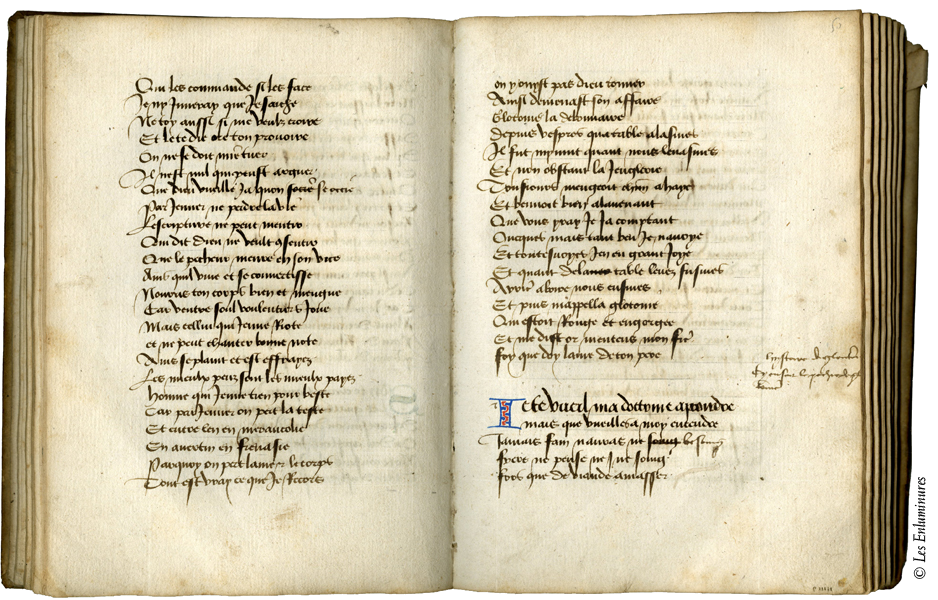 Qui les commande si les face
Je ny Juneray que Je sache
Ne toy aussi si me veulx croire
Et le te die ton prouoire
On ne se doit tuer
Il nest nul qui peust arguer
Que dieu vueille Ja quon
Par Jeuner ne perdre la vie
Lescripture ne peut mentir
Qui dit dieu ne veult
Que le pecheur meure en son vice
Ains quil viue et se conuertisse
Nourris ton corps bien et mengue
Car ventre soul voulentiers Joue
Mais cellui qui Jeune Riote
et ne peut chanter bonne note
Ains se plaint et est
Les mieulx peuz sont les mieulx payez
homme qui Jeune tien pour beste
Car par Jeuner on pert la teste
Et entre len en merancolie
En auertin en frenasie
Parquoy on pert lame et le corps
Tout est vray ce que Je Recors
on ny ouyst pas dieu tonner
Ainsi demenast son affaire
Glotonie la debonnaire
Depuis vespres qua table alasmes
Il fut mynuit quant nous leuasmes
Et non obstant la Jenglerie
Tousiours mengoit
Et beuuoit bien alauenant
Que vous yray Je Ja comptant
Oncques mais tant beu Je nauoye
Et toutesuoyes Jen eu grant Joye
Et quant de la table leuez fusmes
nous eusmes
Et puis mappella glotonie
Qui estoit Rouge et engorgee
Et me dist or mentens mon filz
foy que doy lame de ton pere
Je te vueil ma doctrine aprendre
mais que vueilles a moy entendre
Jamais fain nauras ne besoing
Fors que de viande amasser
© Les Enluminures